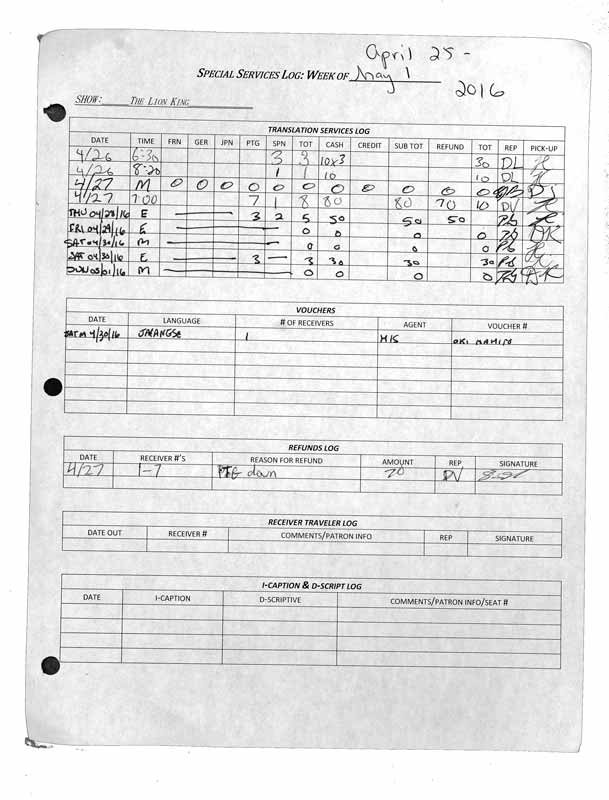 April 25 -
SPECIAL SERVICES LOG: WEEK OF May 1
2016
SHOW: THE LION KING
TRANSLATION SERVICES LOG
DATE TIME FRN GER JPN PTG SPN TOT CASH CREDIT SUB TOT REFUND TOT REP PICK-UP
4/26 6:30 3 3 10x3 30 DL
4/26 8:20 1 1 10 10 DL
4/27 M 0 0 0 0 0 0 0 0 0 0 0
4/27 7:00 7 1 8 80 80 70 10 DV
THU 04/28/16 E 3 2 5 50 50 50
FRI 04/29/16 E 0 0 0 0
SAT 04/30/16 M 0 0 0 0
SAT 04/30/16 E 3 3 30 30 30
SUN 05/01/16 M 0 0 0 0
VOUCHERS
DATE LANGUAGE # OF RECEIVERS AGENT VOUCHER #
SAT M 4/30/16 1 HIS
REFUNDS LOG
DATE RECEIVER #'S REASON FOR REFUND AMOUNT REP SIGNATURE
4/27 1-7 PTG down 70 DV
RECEIVER TRAVELER LOG
DATE OUT RECEIVER # COMMENTS/PATRON INFO REP SIGNATURE
I-CAPTION & D-SCRIPT LOG
DATE I-CAPTION D-SCRIPTIVE COMMENTS/PATRON INFO/SEAT #